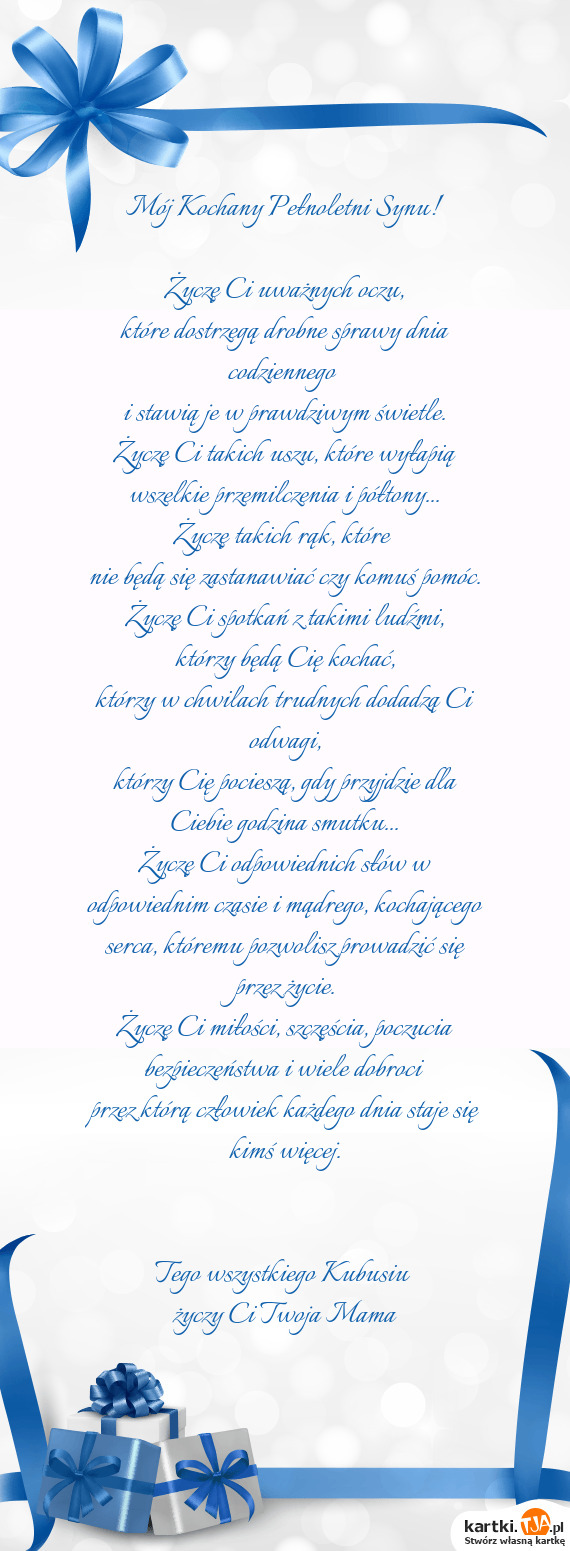 Mój Kochany Pełnoletni Synu!
Życzę Ci uważnych oczu,
które dostrzegą drobne sprawy dnia
codziennego
i stawią je w prawdziwym świetle.
Życzę Ci takich uszu, które wyłapią
wszelkie przemilczenia i półtony...
Życzę takich rąk, które
nie będą się zastanawiać czy komuś pomóc.
Życzę Ci spotkań z takimi ludźmi,
którzy będą Cię kochać,
którzy w chwilach trudnych dodadzą Ci
odwagi,
którzy Cię pocieszą, gdy przyjdzie dla
Ciebie godzina smutku...
Życzę Ci odpowiednich słów w
odpowiednim czasie i mądrego, kochającego
serca, któremu pozwolisz prowadzić się
przez życie.
Życzę Ci miłości, szczęścia, poczucia
bezpieczeństwa i wiele dobroci
przez którą człowiek każdego dnia staje się
kimś więcej.
Tego wszystkiego Kubusiu
życzy Ci Twoja Mama
kartki.TJA.pl
Stwórz własną kartkę